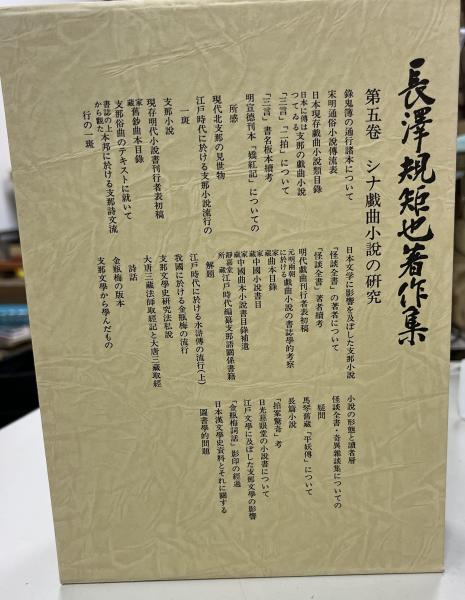 長澤規矩也著作集
第五卷　シナ戯曲小説の研究
錄鬼簿の通行諸本について
宋明通俗小説傳流表
日本現存戯曲小説類目錄
日本に傳はつてゐる支那の戯曲小説
「三言」「二拍」について
「三言」書名板本續考
明宣德刊本「嬌紅記」についての
所感
現代北支那の見世物
江戸時代に於ける支那小説流行の
一斑
支那小説
現存明代小説書刊行者表初稿
家藏舊鈔曲本目錄
支那俗曲のテキストに就いて
書誌の上から觀た本邦に於ける支那詩文流
行の一斑
日本文學に影響を及ぼした支那小説
「怪談全書」の著者について
「怪談全書」著者續考
明代戯曲刊行者表初稿
元明兩朝に於ける戯曲小説の書誌學的考察
家藏曲本目錄
家藏中國小説書目
家藏中國曲本小説書目錄補遺
靜嘉堂所藏江戸時代編纂支那語關係書籍
解題
江戸時代に於ける水滸傳の流行(上)
我國に於ける金瓶梅の流行
支那文學史研究法私説
大唐三藏法師取經記と大唐三藏取經
詩話
金瓶梅の版本
支那文學から學んだもの
小説の形態と讀者層
怪談全書・奇異雜談集についての
疑問
馬琴舊藏「平妖傳」について
長篇小説
「拍案驚奇」考
日光慈眼堂の小説書について
江戸文學に及ぼした支那文學の影響
「金瓶梅詞話」影印の經過
日本漢文學史資料とそれに關する
圖書學的問題